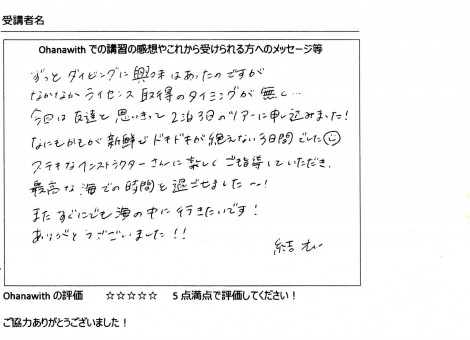 受講者名
Ohanawith での講習の感想やこれから受けられる方へのメッセージ等
ずっと ダイビングに 興味はあったのですが
なかなか ライセンス 取得のタイミングが 無く…
今回は 友達と 思いきって 2泊3日のツアーに申し込みました!
なにもかもが 新鮮で ドキドキが 絶えない 3日間でした☺
ステキなインストラクターさんに 楽しく ご指導していただき、
最高な 海での時間を 過ごせました〜!
また すぐにでも 海の中に 行きたいです!
ありがとうございました!!
Ohanawith の評価 ☆☆☆☆☆ 5 点満点で評価してください!
ご協力ありがとうございました!